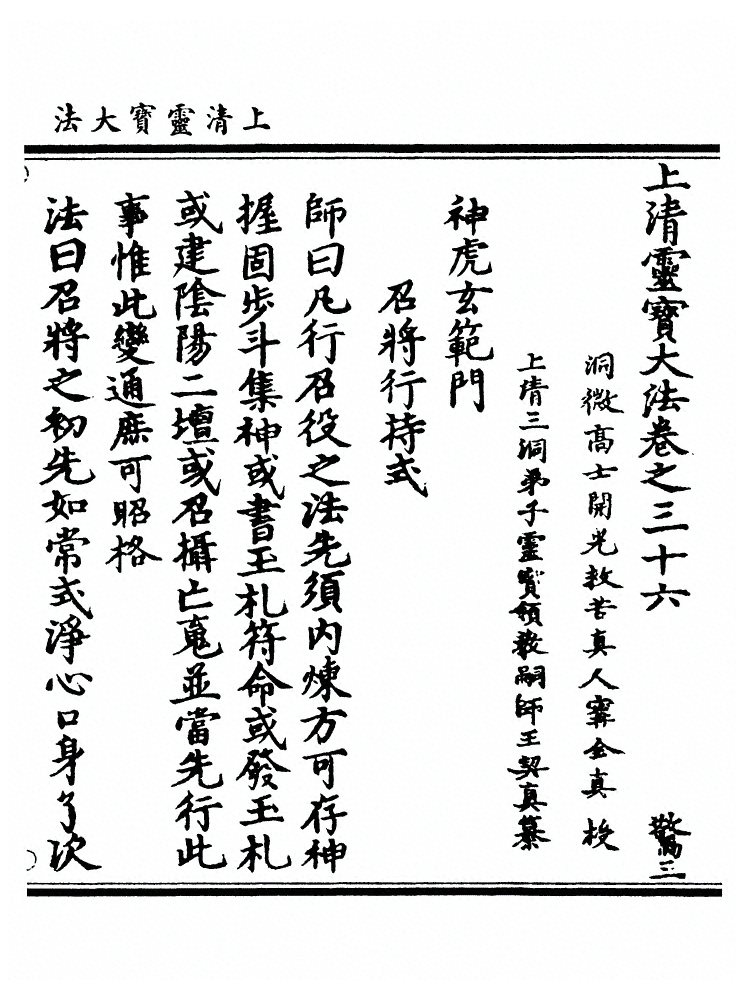 上清靈寶大法
上清靈寶大法卷之三十六 驚三
洞微高士開光救苦真人甯全真 授
上清三洞弟子靈寶領教嗣師王契真纂
神虎玄範門
召將行持式
師曰凡行召役之法先須内煉方可存神
握固步斗集神或書玉札符命或發玉札
或建陰陽二壇或召攝亡䰟並當先行此
事惟此變通庶可昭格
法曰召將之初先如常式淨心口身了次